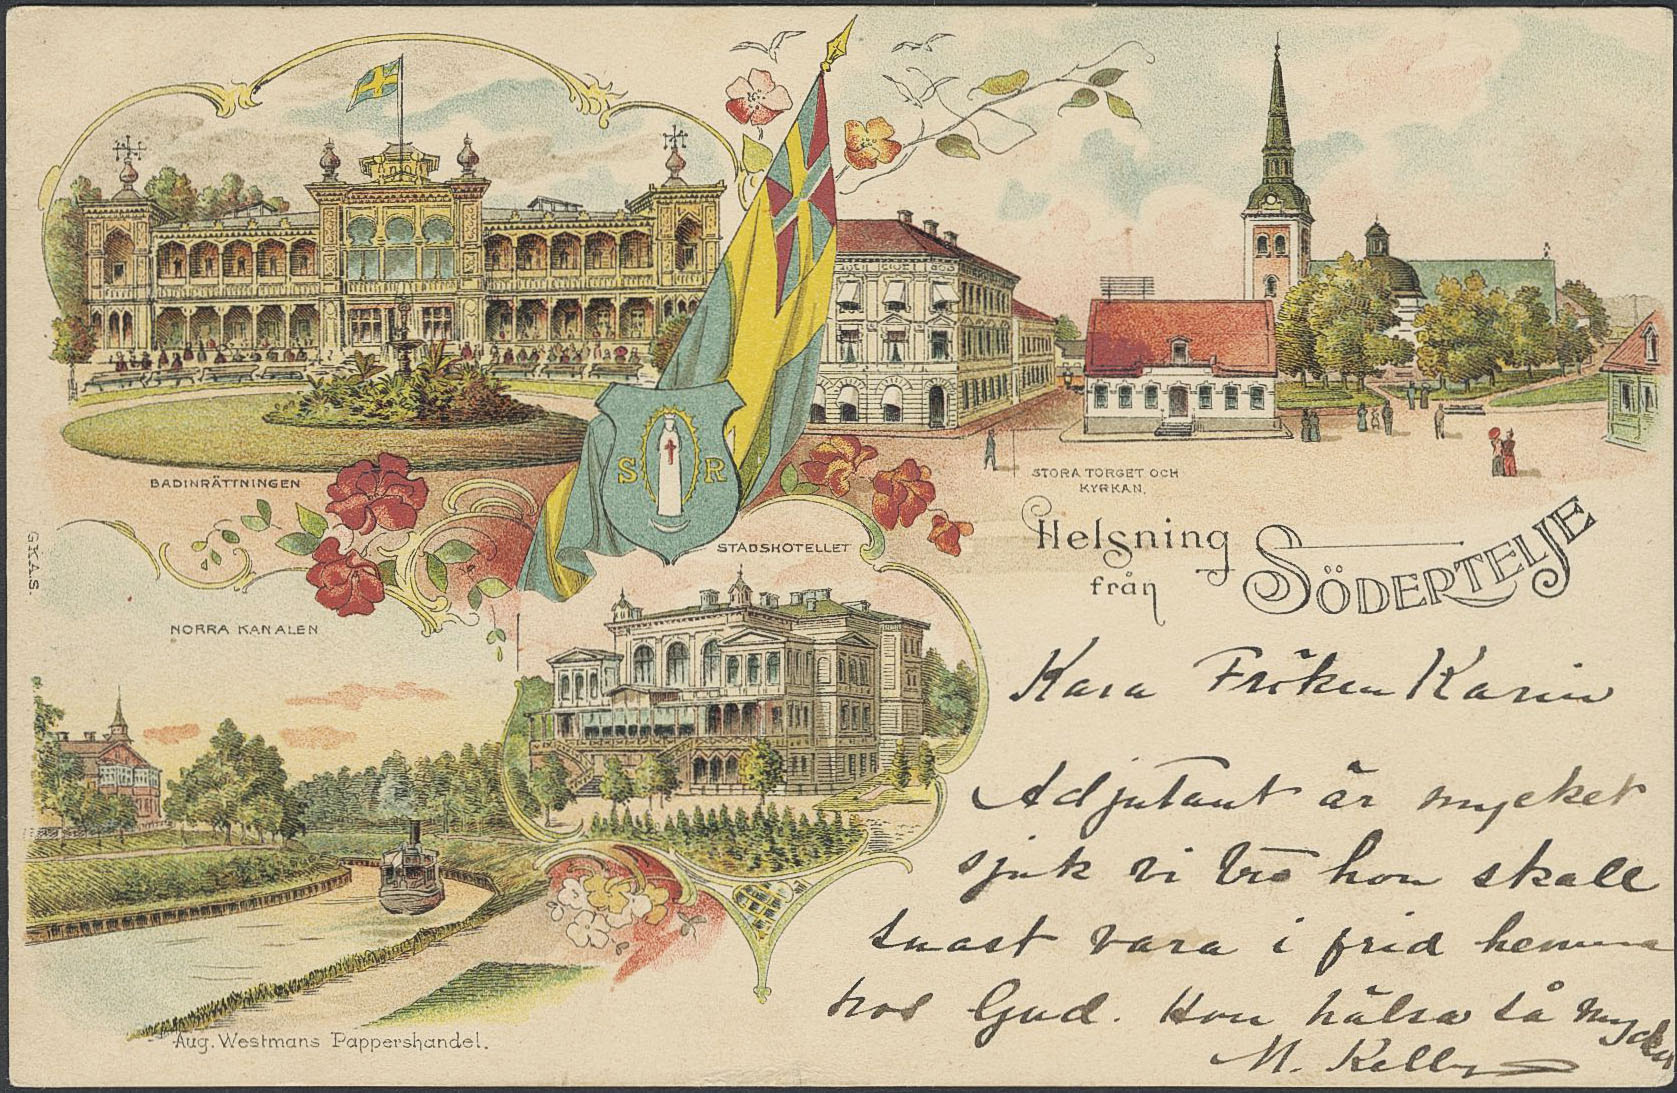 BADINRÄTTNINGEN
STORA TORGET OCH
KYRKAN.
S R
STADSHOTELLET
Helsning
från SÖDERTELJE
G.K.A.S.
NORRA KANALEN
Kära Fröken Karin
Adjutant är mycket
sjuk vi tro hon skall
snart vara i frid hemma
hos Gud. Hon hälsa så mycket
M. Kelly
Aug. Westmans Pappershandel.